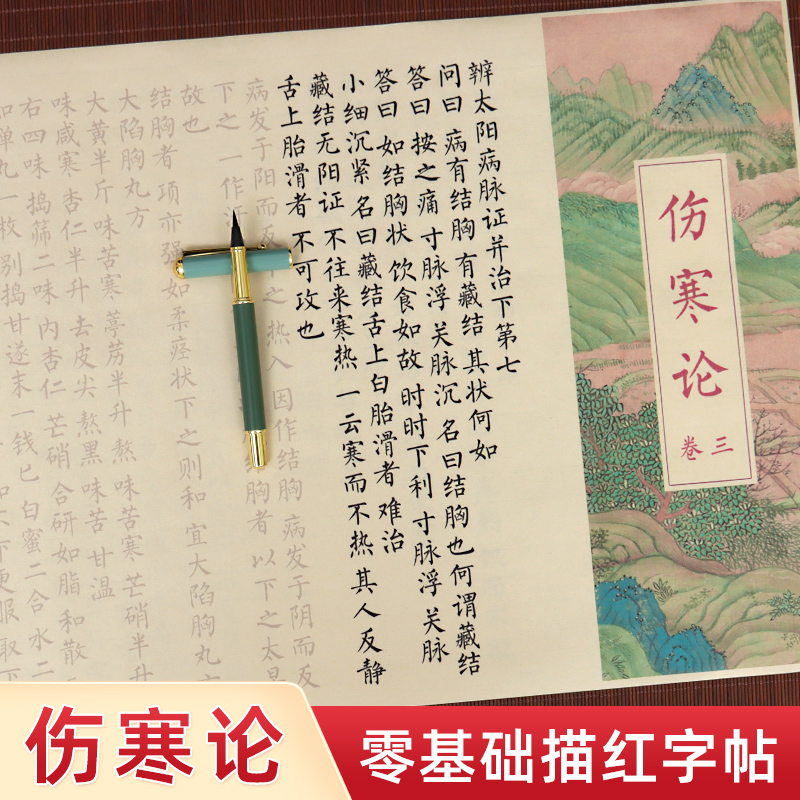 伤寒论
卷三
辨太阳病脉证并治下第七
问曰 病有结胸 有藏结 其状何如
答曰 按之痛 寸脉浮 关脉沉 名曰结胸也 何谓藏结
答曰 如结胸状 饮食如故 时时下利 寸脉浮 关脉
小细沉紧 名曰藏结 舌上白胎滑者 难治
藏结无阳证 不往来寒热 一云寒而不热 其人反静
舌上胎滑者 不可攻也
病发于阳而反 之 热入 因作结胸 病发于阴而反
下之 一作 结胸者 以下之太早
故也
结胸者 项亦强 如柔痉状 下之则和 宜大陷胸丸方
大陷胸丸方
大黄半斤 味苦寒 葶苈半升 熬 味苦寒 芒硝半升
味咸寒 杏仁半升 去皮尖 熬黑 味苦甘温
右四味 捣筛二味 内杏仁 芒硝 合研如脂 和散
如弹丸一枚 别捣甘遂末一钱匕 白蜜二合 水二
下更服 取下
伤寒论
零基础描红字帖